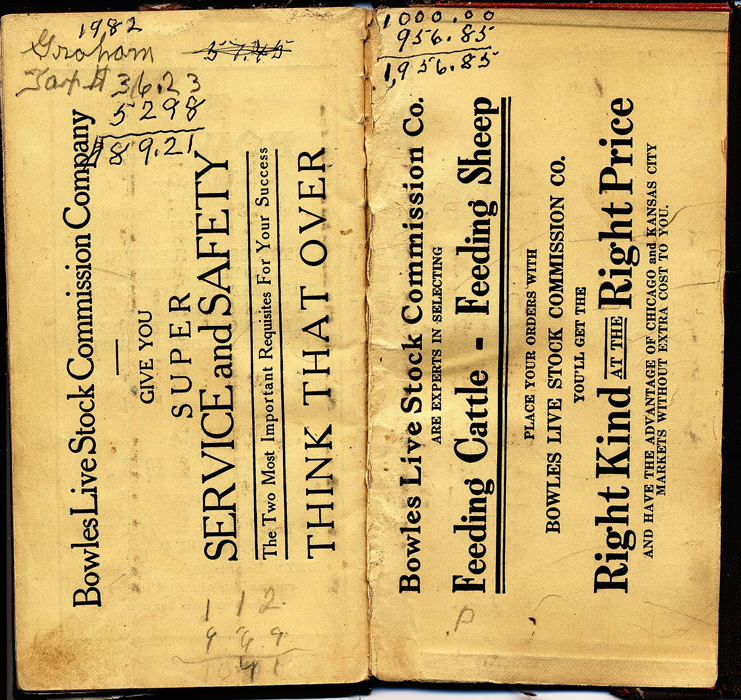 1982
Graham 57.45
Tax # 36.23
5298
$89.21
Bowles Live Stock Commission Company
GIVE YOU
SUPER
SERVICE and SAFETY
The Two Most Important Requisites For Your Success
THINK THAT OVER
112
999
1000.00
956.85
1,956.85
Bowles Live Stock Commission Co.
ARE EXPERTS IN SELECTING
Feeding Cattle - Feeding Sheep
PLACE YOUR ORDERS WITH
BOWLES LIVE STOCK COMMISSION CO.
YOU'LL GET THE
Right Kind AT THE Right Price
AND HAVE THE ADVANTAGE OF CHICAGO and KANSAS CITY
MARKETS WITHOUT EXTRA COST TO YOU.
P